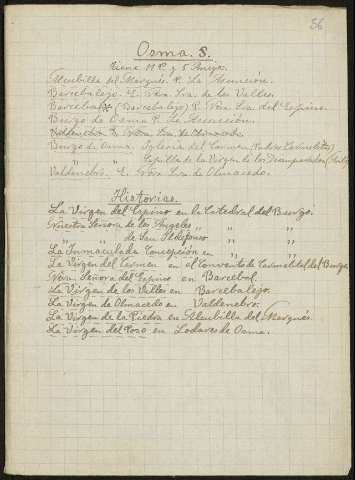 86
Osma. S.
Tiene 11 P. y 5 Anejos.
Alcubilla del Marqués. P. La Asunción.
Barcebalejo. E. Ntra. Sra. de los Valles.
Barcebal (Barcebalejo) P. Ntra. Sra. del Espino.
Burgo de Osma P. La Asunción.
Valdenebro E. Ntra. Sra. de Olmacedo
Burgo de Osma. Iglesia del Carmen (Padres Carmelitas)
" " Capilla de la Virgen de los Desamparados
Valdenebro. E. Ntra. Sra. de Olmacedo.
Historias.
La Virgen del Espino en la Catedral del Burgo.
Nuestra Señora de los Angeles " " "
" " de San Ildefonso " " "
La Inmaculada Concepción en " "
La Virgen del Carmen en el Convento de Carmelitas del Burgo.
Ntra. Señora del Espino en Barcebal.
La Virgen de los Valles en Barcebalejo.
La Virgen de Olmacedo en Valdenebro.
La Virgen de la Piedra en Alcubilla del Marqués.
La Virgen del Pozo en Lodares de Osma.